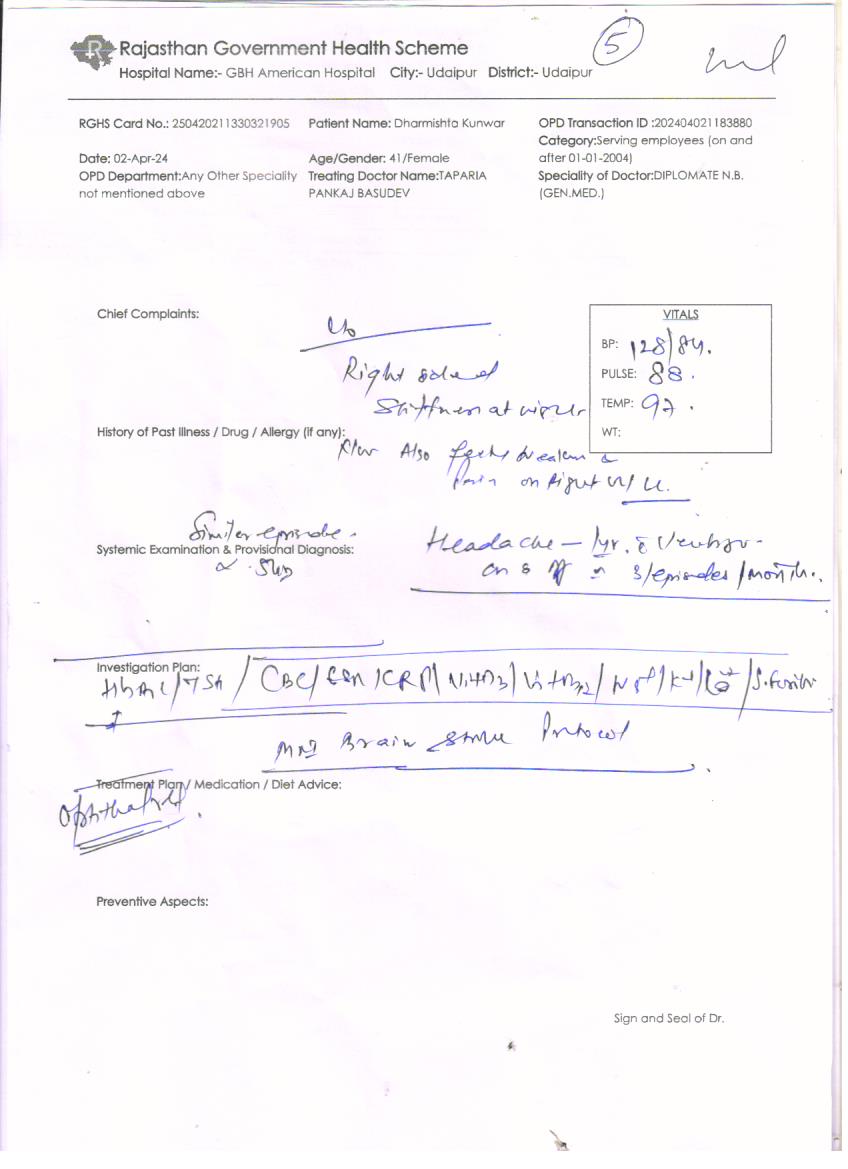 Rajasthan Government Health Scheme
Hospital Name:- GBH American Hospital City:- Udaipur District:- Udaipur
5
RGHS Card No.: 250420211330321905 Patient Name: Dharmishta Kunwar OPD Transaction ID :202404021183880
Category:Serving employees (on and
after 01-01-2004)
Date: 02-Apr-24 Age/Gender: 41/Female
OPD Department:Any Other Speciality Treating Doctor Name:TAPARIA Speciality of Doctor:DIPLOMATE N.B.
not mentioned above PANKAJ BASUDEV (GEN.MED.)
Chief Complaints:
c/o
Right sided
Stiffness at
VITALS
BP: 128/84.
PULSE: 88.
TEMP: 97.
WT:
History of Past illness / Drug / Allergy (if any):
Also
Pain on Right U/L.
Similar episode
Systemic Examination & Provisional Diagnosis:
Headache - 1yr.
on & off 3/episodes/month.
Investigation Plan:
HbA1c/TSH/CBC/ESR/CRP/Vit D3/Vit B12/Na+/K+/Ca++/S.Ferritin
MRI Brain Stroke Protocol
Treatment Plan / Medication / Diet Advice:
Preventive Aspects:
Sign and Seal of Dr.